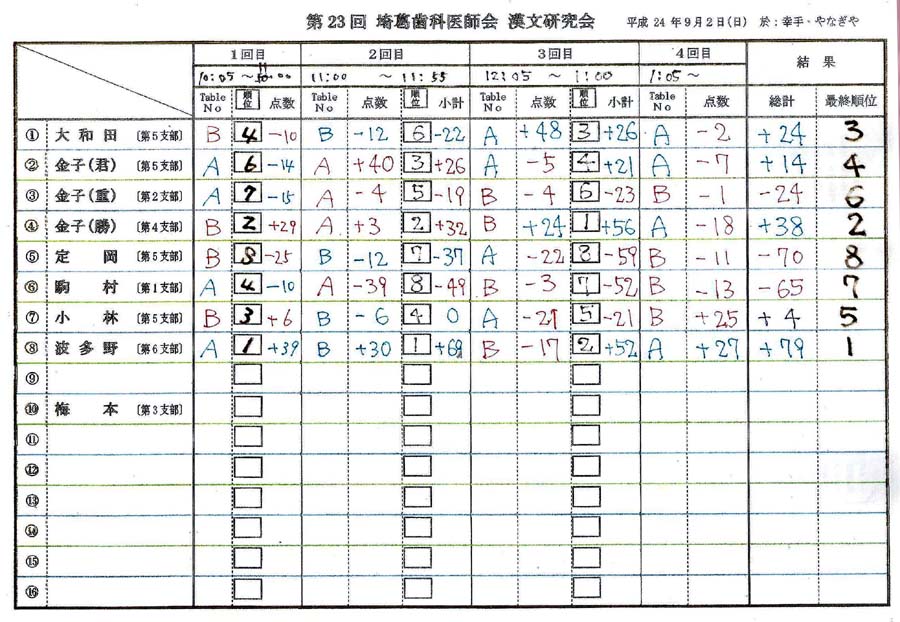 第23回 埼葛歯科医師会 漢文研究会 平成24年9月2日(日) 於:幸手・やなぎや
1回目 2回目 3回目 4回目 結果
10:05 ～ 11:00 ～ 11:55 12:05 ～ 1:00 1:05 ～
Table No 順位 点数 Table No 点数 順位 小計 Table No 点数 順位 小計 Table No 点数 総計 最終順位
① 大和田 〔第5支部〕 B 4 -10 B -12 6 -22 A +48 3 +26 A -2 +24 3
② 金子(君) 〔第5支部〕 A 6 -14 A +40 3 +26 A -5 4 +21 A -7 +14 4
③ 金子(重) 〔第2支部〕 A 7 -15 A -4 5 -19 B -4 6 -23 B -1 -24 6
④ 金子(勝) 〔第4支部〕 B 2 +29 A +3 2 +32 B +24 1 +56 A -18 +38 2
⑤ 定岡 〔第5支部〕 B 8 -25 B -12 7 -37 A -22 8 -59 B -11 -70 8
⑥ 駒村 〔第1支部〕 A 4 -10 A -39 8 -49 B -3 7 -52 B -13 -65 7
⑦ 小林 〔第5支部〕 B 3 +6 B -6 4 0 A -21 5 -21 B +25 +4 5
⑧ 波多野 〔第6支部〕 A 1 +39 B +30 1 +69 B -17 2 +52 A +27 +79 1
⑨
⑩ 梅本 〔第3支部〕
⑪
⑫
⑬
⑭
⑮
⑯